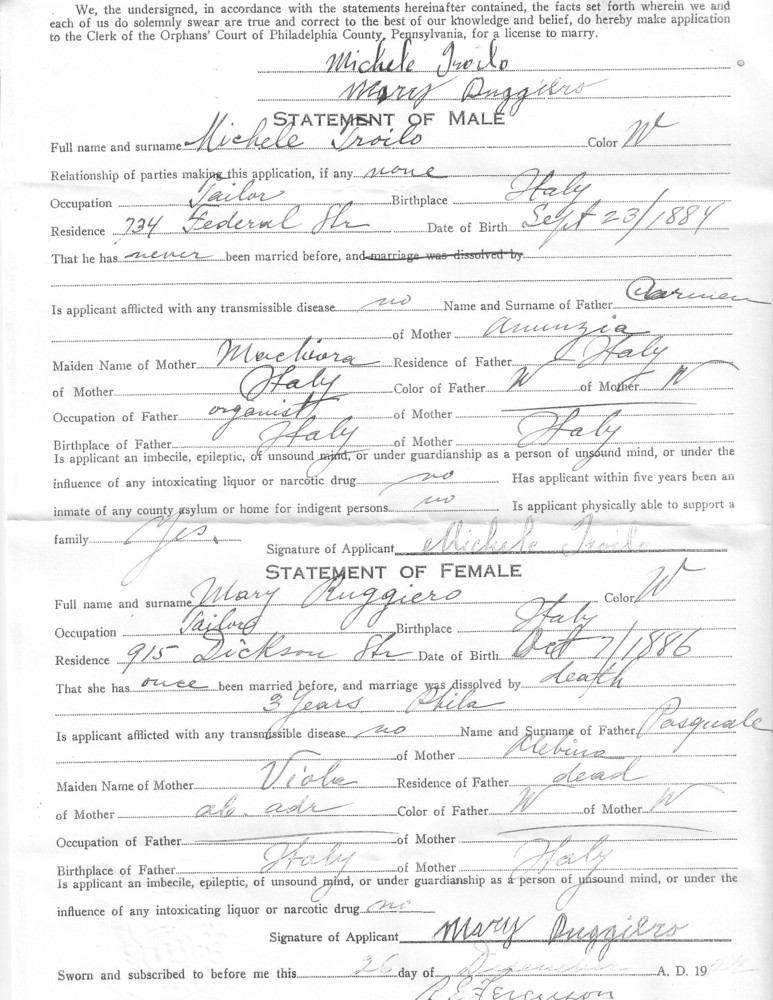 We, the undersigned, in accordance with the statements hereinafter contained, the facts set forth wherein we and
each of us do solemnly swear are true and correct to the best of our knowledge and belief, do hereby make application
to the Clerk of the Orphans' Court of Philadelphia County, Pennsylvania, for a license to marry.
Michele Troilo
Mary Ruggiero
STATEMENT OF MALE
Full name and surname Michele Troilo Color W
Relationship of parties making this application, if any none
Occupation Tailor Birthplace Italy
Residence 734 Federal Str Date of Birth Sept 23/1884
That he has never been married before, and marriage was dissolved by
Is applicant afflicted with any transmissible disease no Name and Surname of Father Carmen
of Mother Anunzia
Maiden Name of Mother Machiora Residence of Father Italy
of Mother Italy Color of Father W of Mother W
Occupation of Father organist of Mother
Birthplace of Father Italy of Mother Italy
Is applicant an imbecile, epileptic, of unsound mind, or under guardianship as a person of unsound mind, or under the
influence of any intoxicating liquor or narcotic drug no Has applicant within five years been an
inmate of any county asylum or home for indigent persons no Is applicant physically able to support a
family Yes. Signature of Applicant Michele Troilo
STATEMENT OF FEMALE
Full name and surname Mary Ruggiero Color W
Occupation Tailor Birthplace Italy
Residence 915 Dickson Str Date of Birth Oct 7/1886
That she has once been married before, and marriage was dissolved by death
3 Years Phila
Is applicant afflicted with any transmissible disease no Name and Surname of Father Pasquale
of Mother
Maiden Name of Mother Viola Residence of Father dead
of Mother ab. adr Color of Father W of Mother W
Occupation of Father of Mother
Birthplace of Father Italy of Mother Italy
Is applicant an imbecile, epileptic, of unsound mind, or under guardianship as a person of unsound mind, or under the
influence of any intoxicating liquor or narcotic drug no
Signature of Applicant Mary Ruggiero
Sworn and subscribed to before me this 26 day of December A. D. 19
Ferguson